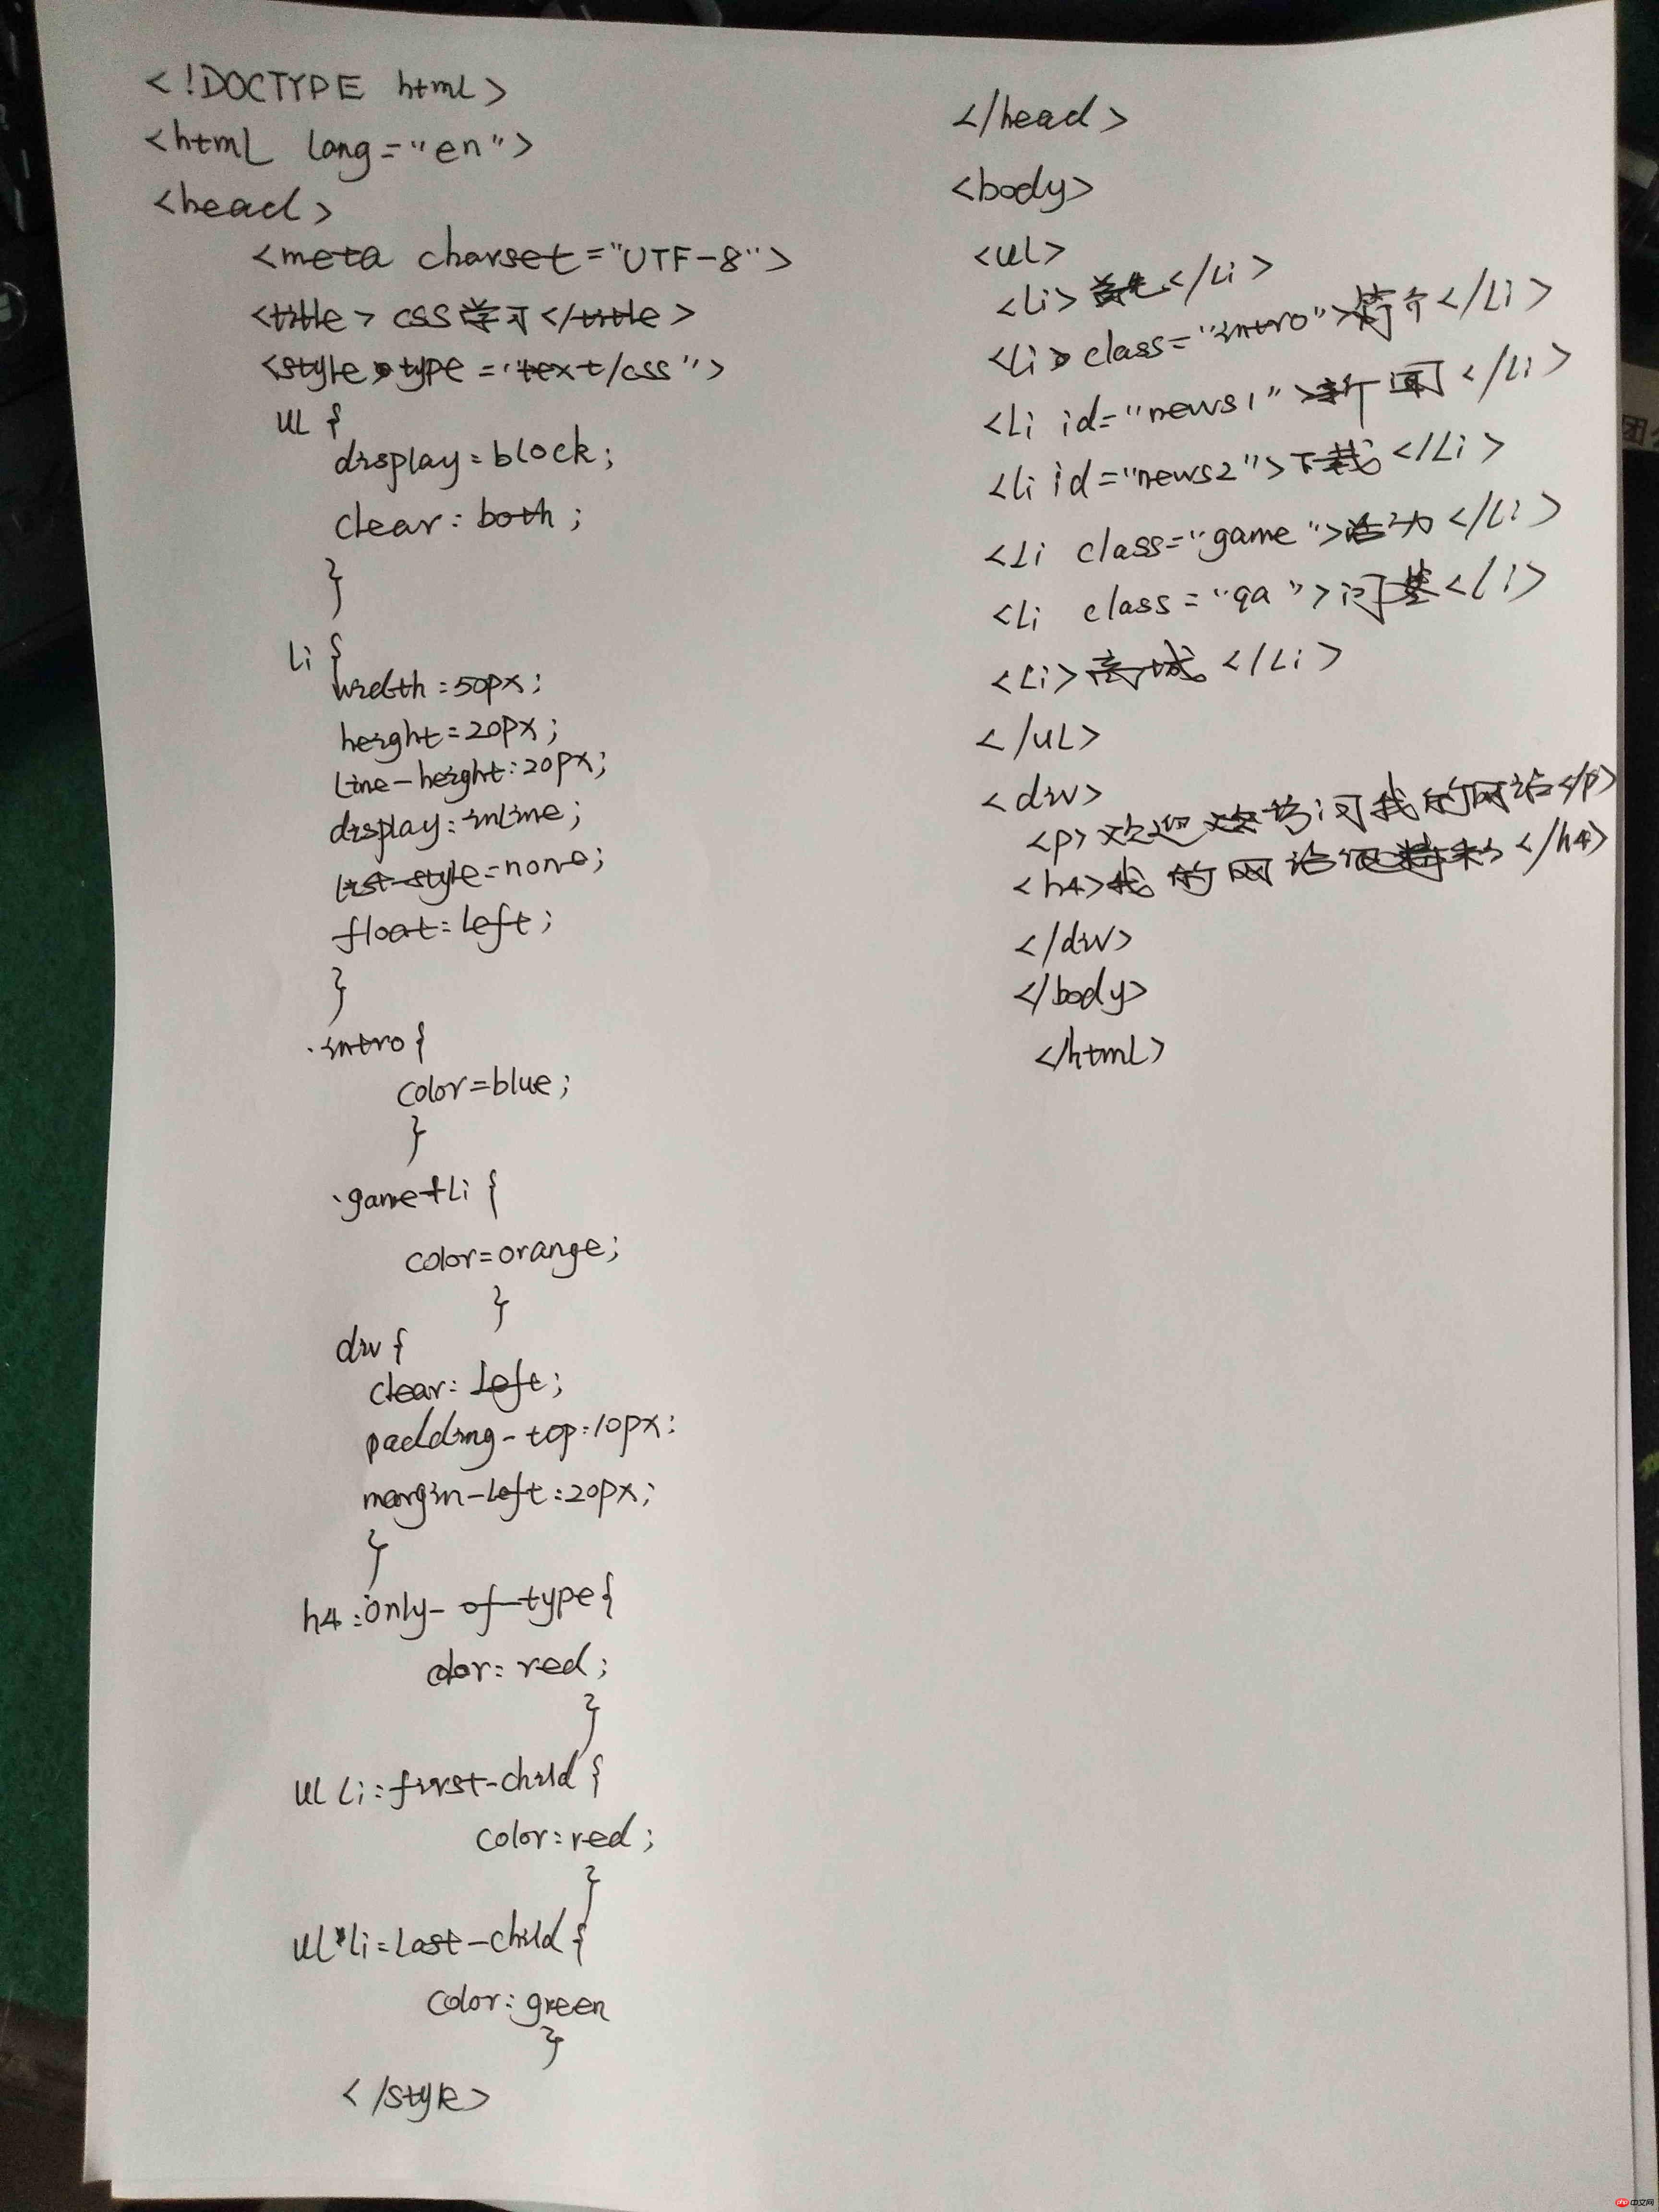 <!DOCTYPE html>
<html lang="en">
<head>
<meta charset="UTF-8">
<title>css学习</title>
<style type="text/css">
ul {
display:block;
clear:both;
}
li {
width:50px;
height:20px;
line-height:20px;
display:inline;
list-style:none;
float:left;
}
.intro{
color=blue;
}
.game+li {
color=orange;
}
div {
clear:left;
padding-top:10px;
margin-left:20px;
}
h4:only-of-type{
color:red;
}
ul li:first-child {
color:red;
}
ul li:last-child {
color:green
}
</style>
</head>
<body>
<ul>
<li></li>
<li class="intro">简介</li>
<li id="news1">新闻</li>
<li id="news2">下载</li>
<li class="game">活动</li>
<li class="qa">问答<li>
<li>商城</li>
</ul>
<div>
<p>欢迎访问我的网站</p>
<h4>我的网站</h4>
</div>
</body>
</html>
团
php 中文网